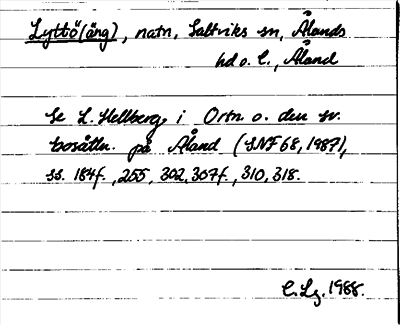 Lyttö(äng), natn, Saltviks sn, Ålands
hd o. l., Åland
Se L. Hellberg, i Ortn. o. den sv.
bosättn. på Åland (SNF 68, 1987),
ss. 184f., 255, 302, 307f., 310, 318.
C. Lg. 1988.